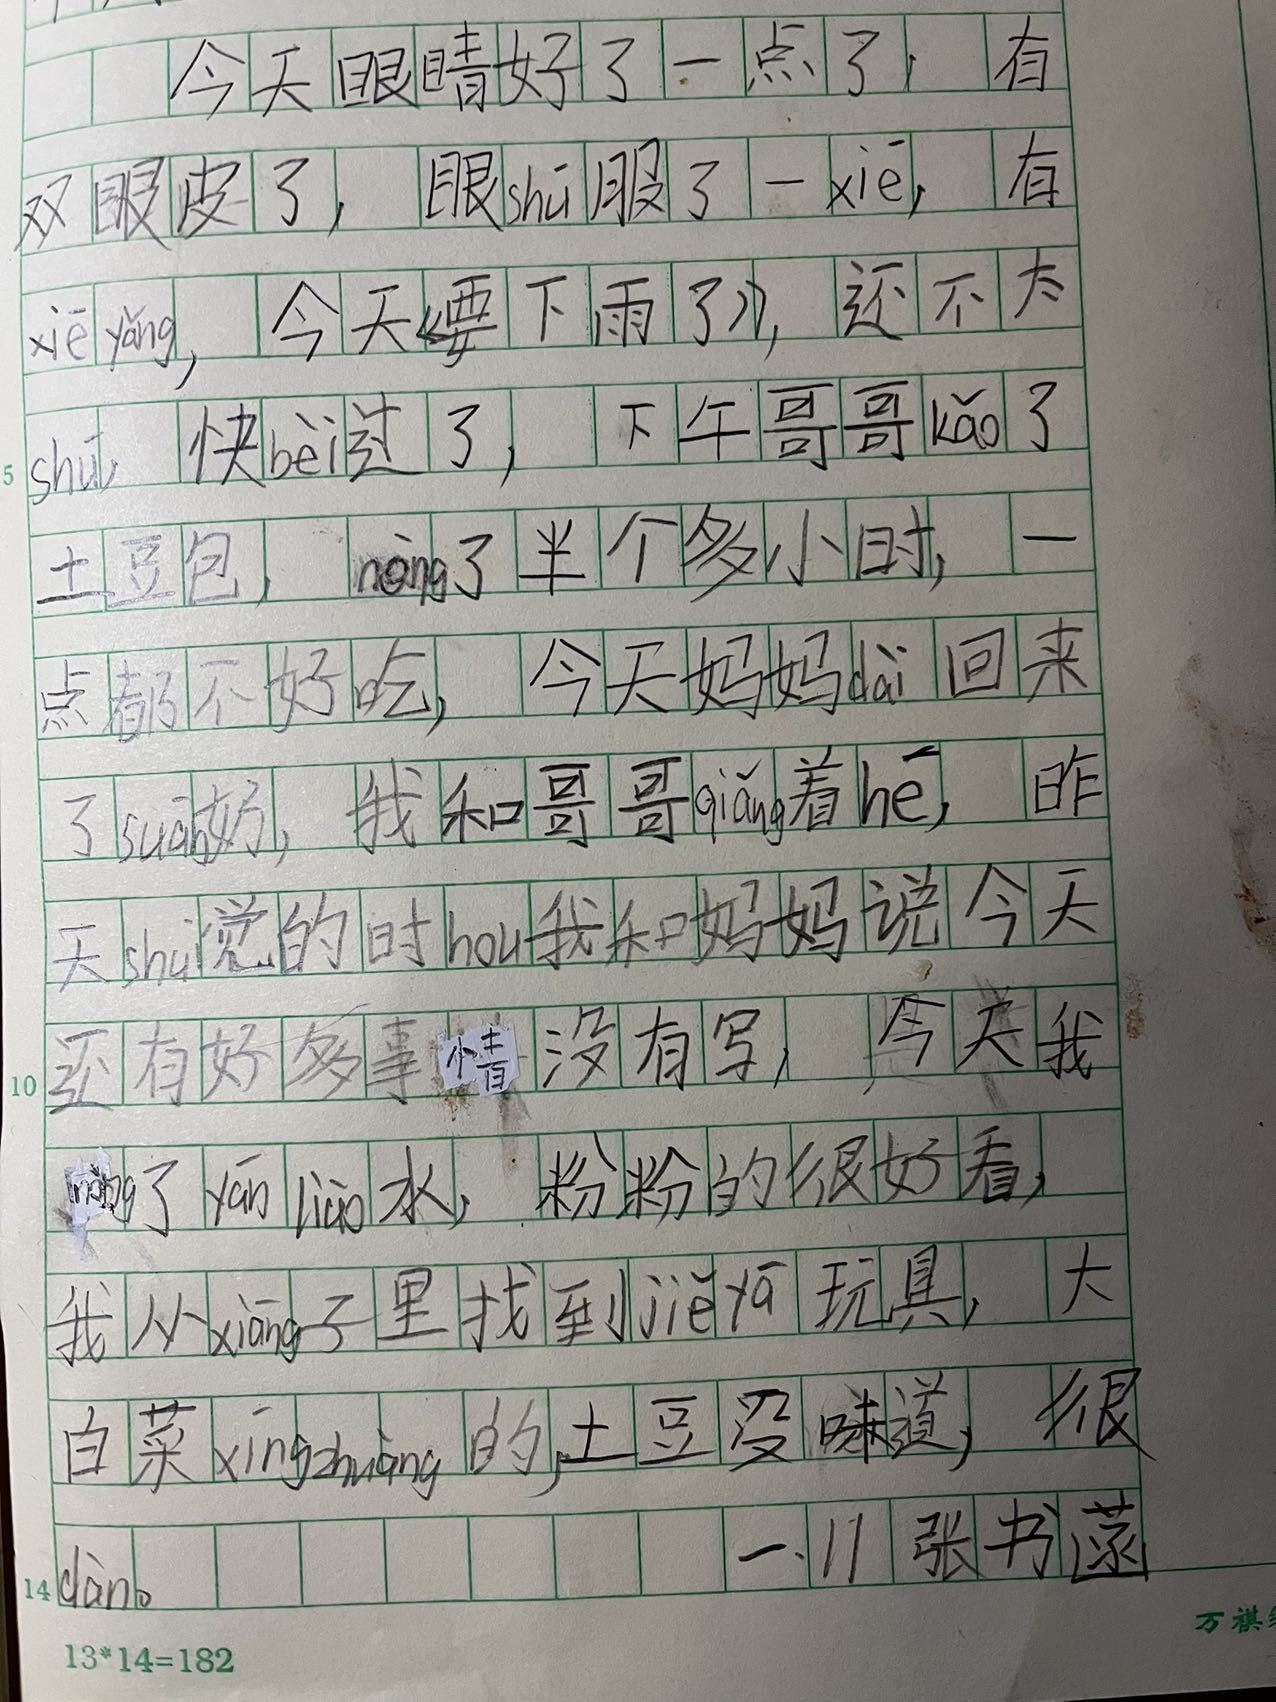 今天眼睛好了一点了，有
双眼皮了，眼shū服了一xiē，有
xiē yǎng，今天《要下雨了》，还不太
shú，快bèi过了，下午哥哥kǎo了
5
土豆包，nòng了半个多小时，一
点都不好吃，今天妈妈dài回来
了suān奶，我和哥哥qiǎng着hē，昨
天shuì觉的时hou我和妈妈说今天
还有好多事情没有写，今天我
10
nòng了yán liào水，粉粉的很好看，
我从xiāng子里找到jiě yā玩具，大
白菜xíngzhuàng的，土豆没味道，很
dàn。一.11 张书菡
14
13*14=182
万祺